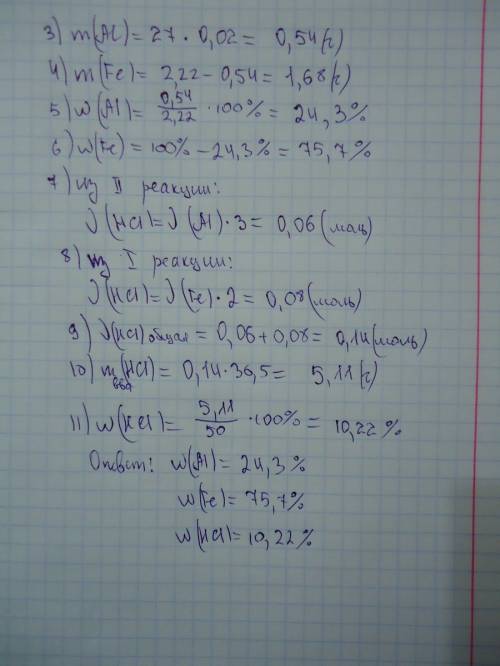 3) m(Al) = 27 · 0,02 = 0,54(г)
4) m(Fe) = 2,22 - 0,54 = 1,68(г)
5) w(Al) = 0,54/2,22 · 100% = 24,3%
6) w(Fe) = 100% - 24,3% = 75,7%
7) из II реакции:
ν(HCl) = ν(Al) · 3 = 0,06(моль)
8) из I реакции:
ν(HCl) = ν(Fe) · 2 = 0,08(моль)
9) ν(HCl) общая = 0,06 + 0,08 = 0,14(моль)
10) m(HCl) = 0,14 · 36,5 = 5,11(г)
вва
11) w(HCl) = 5,11/50 · 100% = 10,22%
Ответ: w(Al) = 24,3%
w(Fe) = 75,7%
w(HCl) = 10,22%